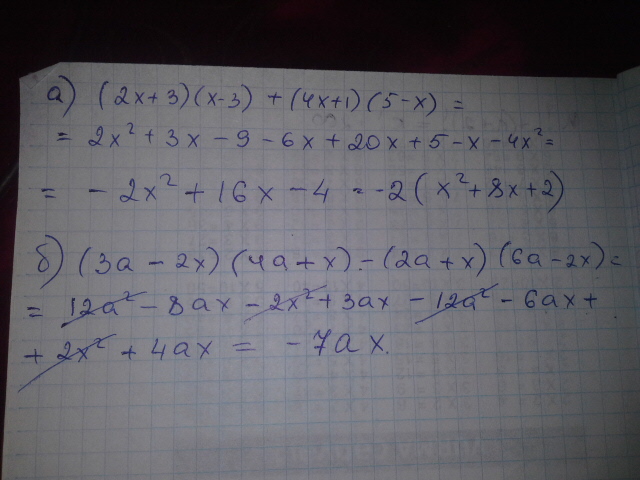 а) (2x+3)(x-3) + (4x+1)(5-x) =
= 2x² + 3x - 9 - 6x + 20x + 5 - x - 4x² =
= - 2x² + 16x - 4 = -2(x² + 8x + 2)
б) (3a - 2x)(4a + x) - (2a + x)(6a - 2x) =
= 12a² - 8ax - 2x² + 3ax - 12a² - 6ax +
+ 2x² + 4ax = - 7ax.